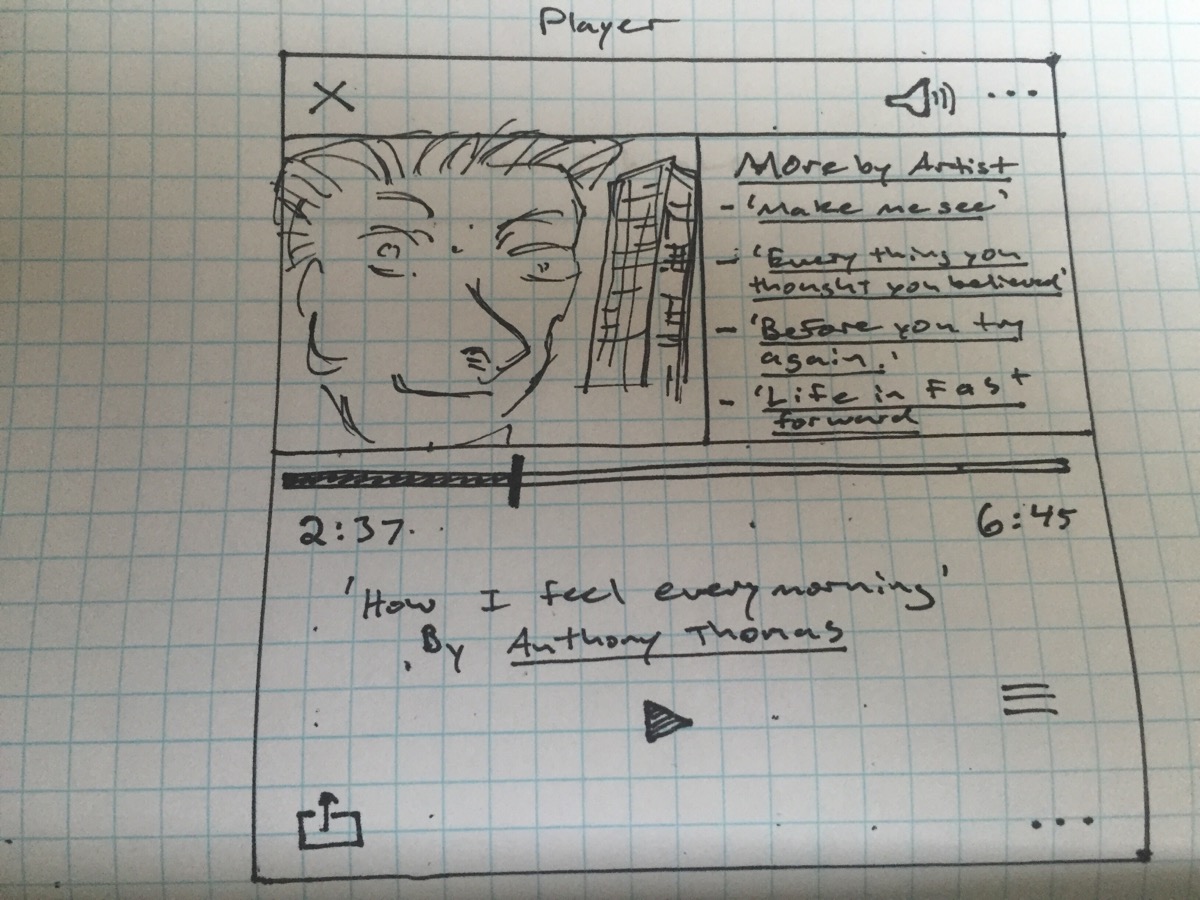 Player
More by Artist
- 'Make me see'
- 'Every thing you
thought you believed'
- 'Before you try
again.'
- 'Life in Fast
forward
2:37
6:45
'How I feel every morning'
By Anthony Thomas